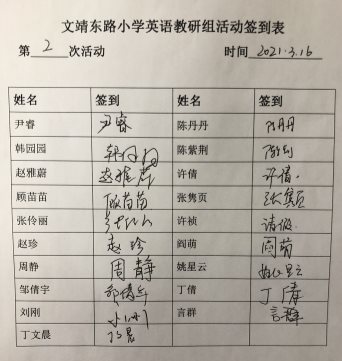 文靖东路小学英语教研组活动签到表
第 2 次活动 时间 2021.3.16
姓名 签到 姓名 签到
尹睿 尹睿 陈丹丹 陈丹丹
韩园园 韩园园 陈紫荆
赵雅蔚 赵雅蔚 许倩 许倩
顾苗苗 顾苗苗 张隽页 张隽页
张伶丽 许祯 请假
赵珍 赵珍 阎萌 阎萌
周静 周静 姚星云 姚星云
邹倩宇 邹倩宇 丁倩 丁倩
刘刚 刘刚 言群 言群
丁文晨